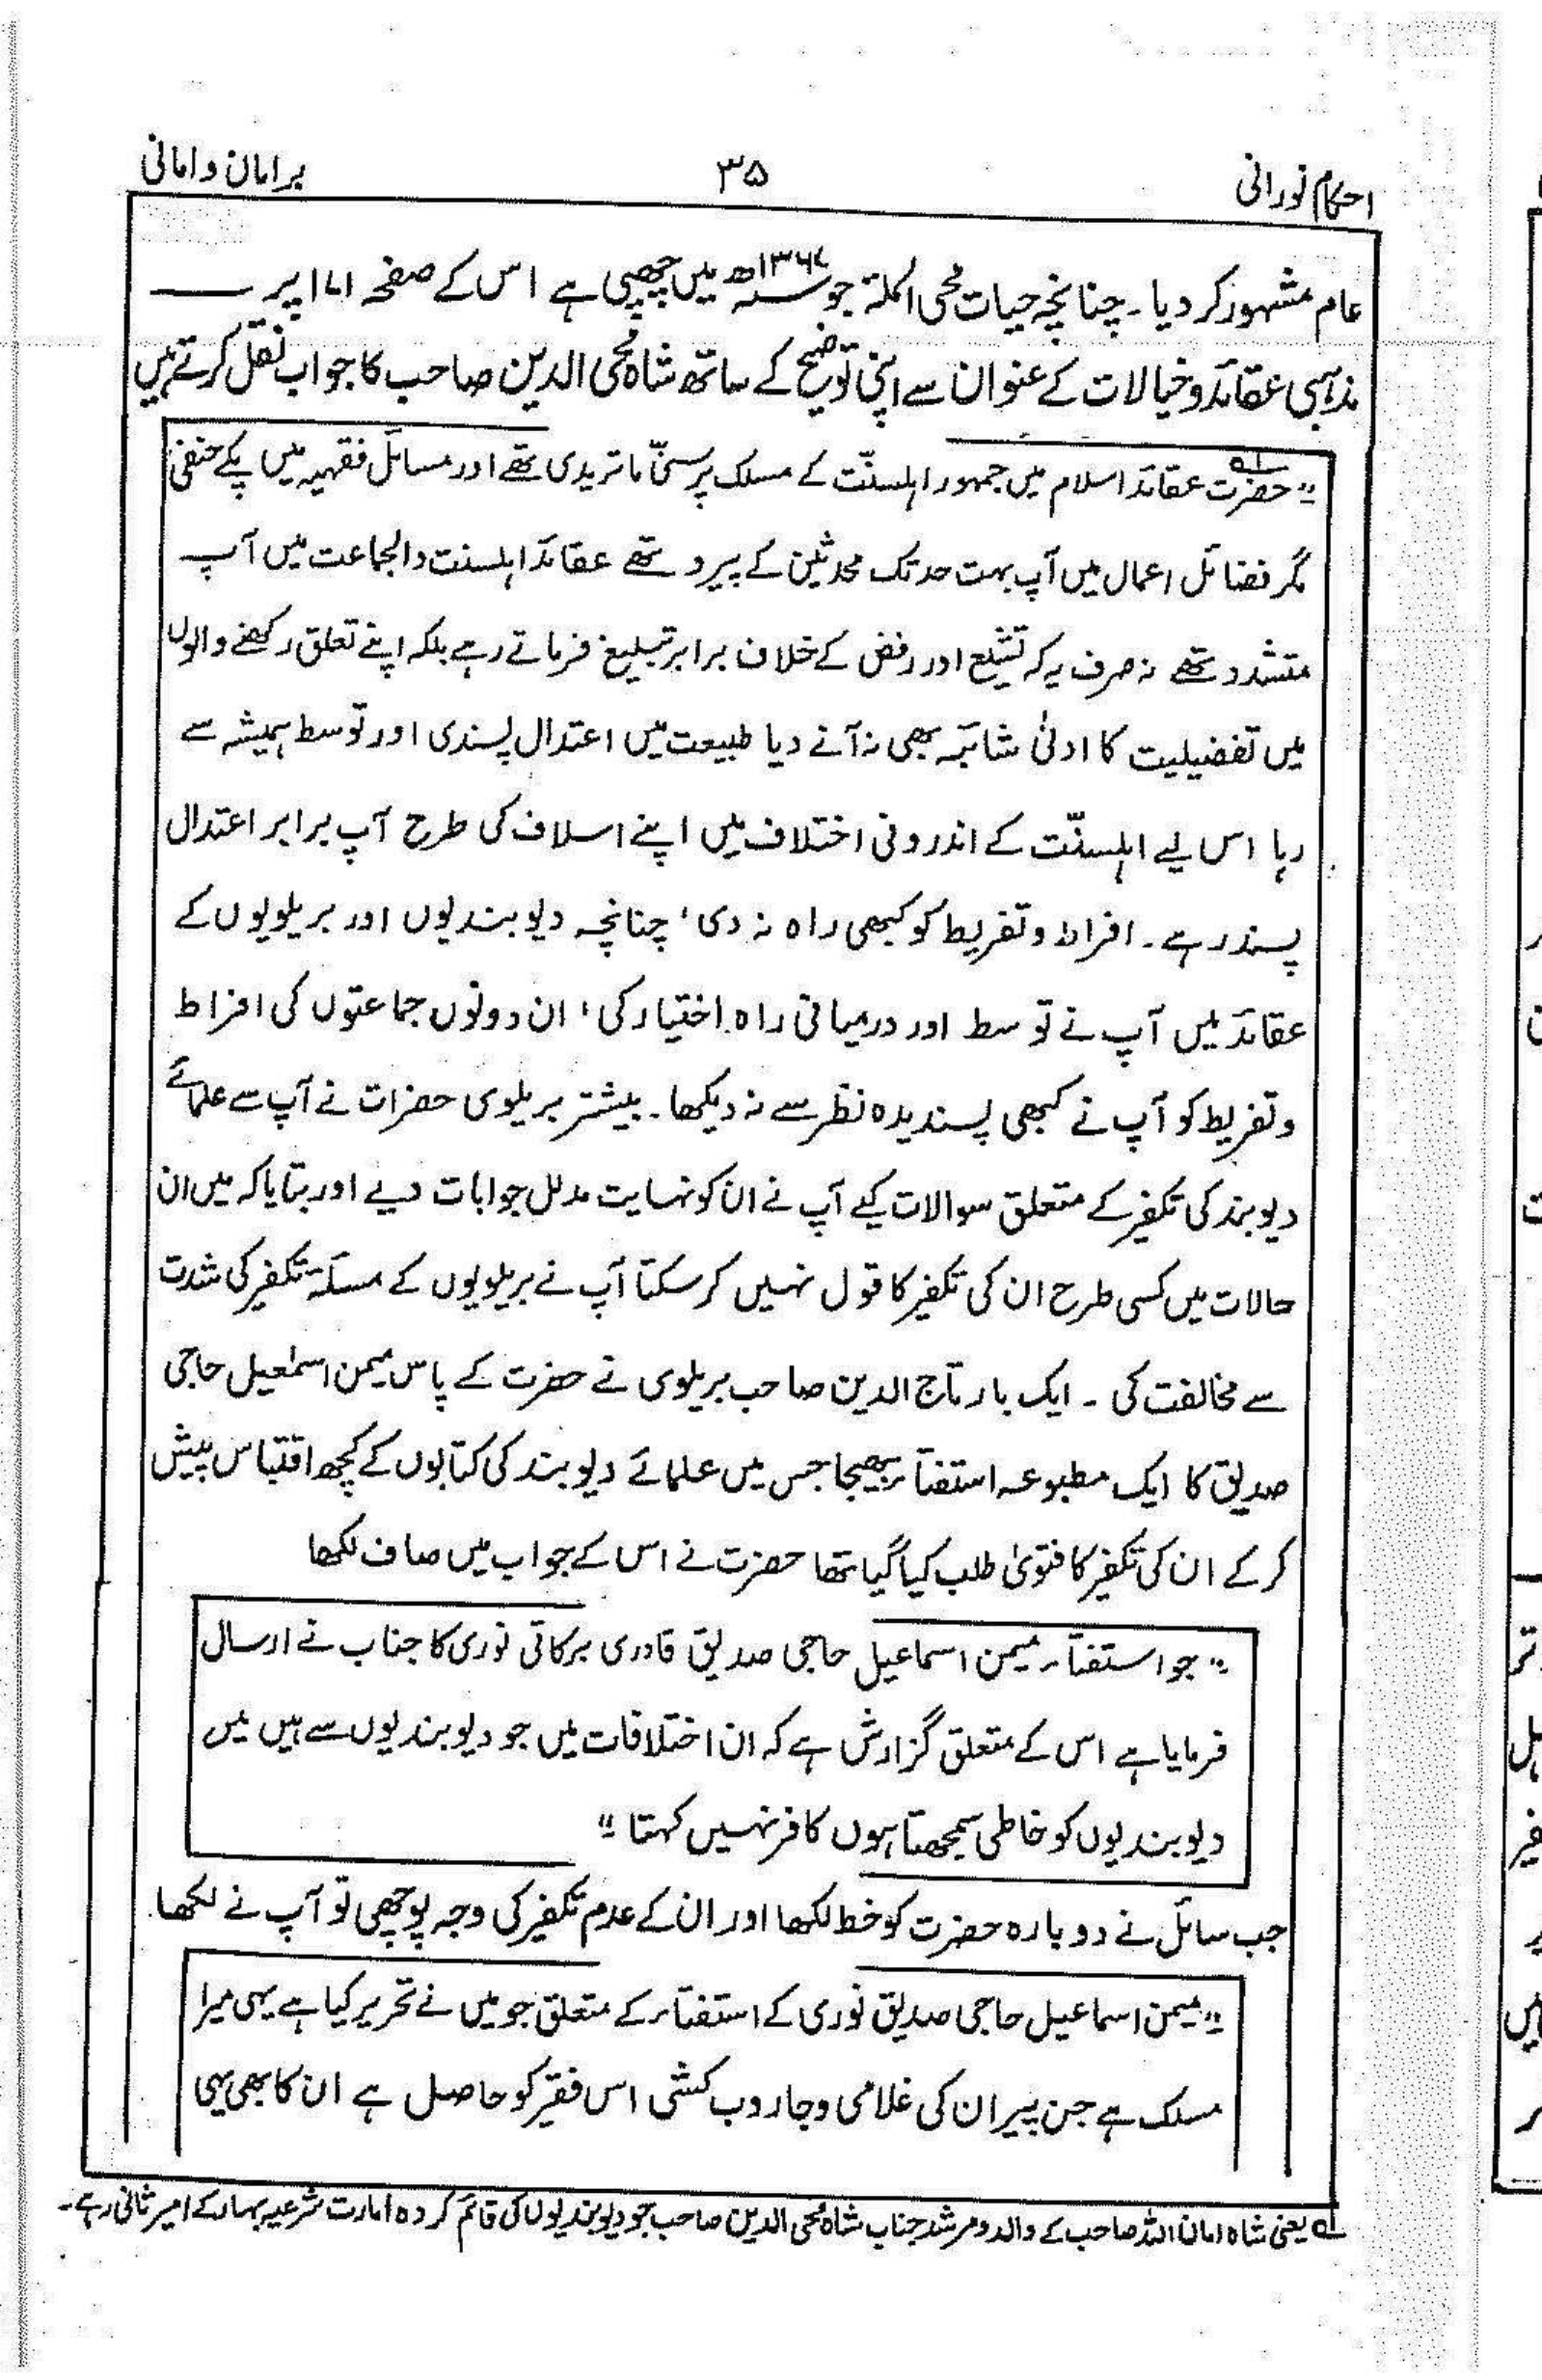 احکام نورانی
۳۵
بر امان و امانی
عام مشہور کر دیا۔ چنانچہ حیات محی الملۃ جو ۱۳۶۷ھ میں چھپی ہے اس کے صفحہ ۱۷۱ پر ——
مذہبی عقائد و خیالات کے عنوان سے اپنی توضیح کے ساتھ شاہ محی الدین صاحب کا جواب نقل کرتے ہیں
"حضرت؂۱ عقائد اسلام میں جمہور اہلسنّت کے مسلک پر سنّی ماتریدی تھے اور مسائل فقہیہ میں پکے حنفی
مگر فضائل اعمال میں آپ بہت حد تک محدثین کے پیرو تھے عقائد اہلسنت والجماعت میں آپ
متشدد تھے نہ صرف یہ کہ تشیع اور رفض کے خلاف برابر تبلیغ فرماتے رہے بلکہ اپنے تعلق رکھنے والوں
میں تفضیلیت کا ادنیٰ شائبہ بھی نہ آنے دیا طبیعت میں اعتدال پسندی اور توسط ہمیشہ سے
رہا اس لیے اہلسنّت کے اندرونی اختلاف میں اپنے اسلاف کی طرح آپ برابر اعتدال
پسند رہے۔ افراط و تفریط کو کبھی راہ نہ دی، چنانچہ دیوبندیوں اور بریلویوں کے
عقائد میں آپ نے توسط اور درمیانی راہ اختیار کی، ان دونوں جماعتوں کی افراط
و تفریط کو آپ نے کبھی پسندیدہ نظر سے نہ دیکھا۔ بیشتر بریلوی حضرات نے آپ سے علمائے
دیوبند کی تکفیر کے متعلق سوالات کیے آپ نے ان کو نہایت مدلل جوابات دیے اور بتایا کہ میں ان
حالات میں کسی طرح ان کی تکفیر کا قول نہیں کر سکتا آپ نے بریلویوں کے مسئلۂ تکفیر کی شدت
سے مخالفت کی۔ ایک بار تاج الدین صاحب بریلوی نے حضرت کے پاس میمن اسمٰعیل حاجی
صدیق کا ایک مطبوعہ استفتاء بھیجا جس میں علمائے دیوبند کی کتابوں کے کچھ اقتباس پیش
کر کے ان کی تکفیر کا فتویٰ طلب کیا گیا تھا حضرت نے اس کے جواب میں صاف لکھا
"جو استفتاء میمن اسماعیل حاجی صدیق قادری برکاتی نوری کا جناب نے ارسال
فرمایا ہے اس کے متعلق گزارش ہے کہ ان اختلافات میں جو دیوبندیوں سے ہیں میں
دیوبندیوں کو خاطی سمجھتا ہوں کافر نہیں کہتا"
جب سائل نے دوبارہ حضرت کو خط لکھا اور ان کے عدم تکفیر کی وجہ پوچھی تو آپ نے لکھا۔
"میمن اسماعیل حاجی صدیق نوری کے استفتاء کے متعلق جو میں نے تحریر کیا ہے یہی میرا
مسلک ہے جن پیران کی غلامی و جاروب کشی اس فقیر کو حاصل ہے ان کا بھی یہی
؂۱ یعنی شاہ امان اللہ صاحب کے والد و مرشد جناب شاہ محی الدین صاحب جو دیوبندیوں کی قائم کردہ امارت شرعیہ بہار کے امیر ثانی رہے۔